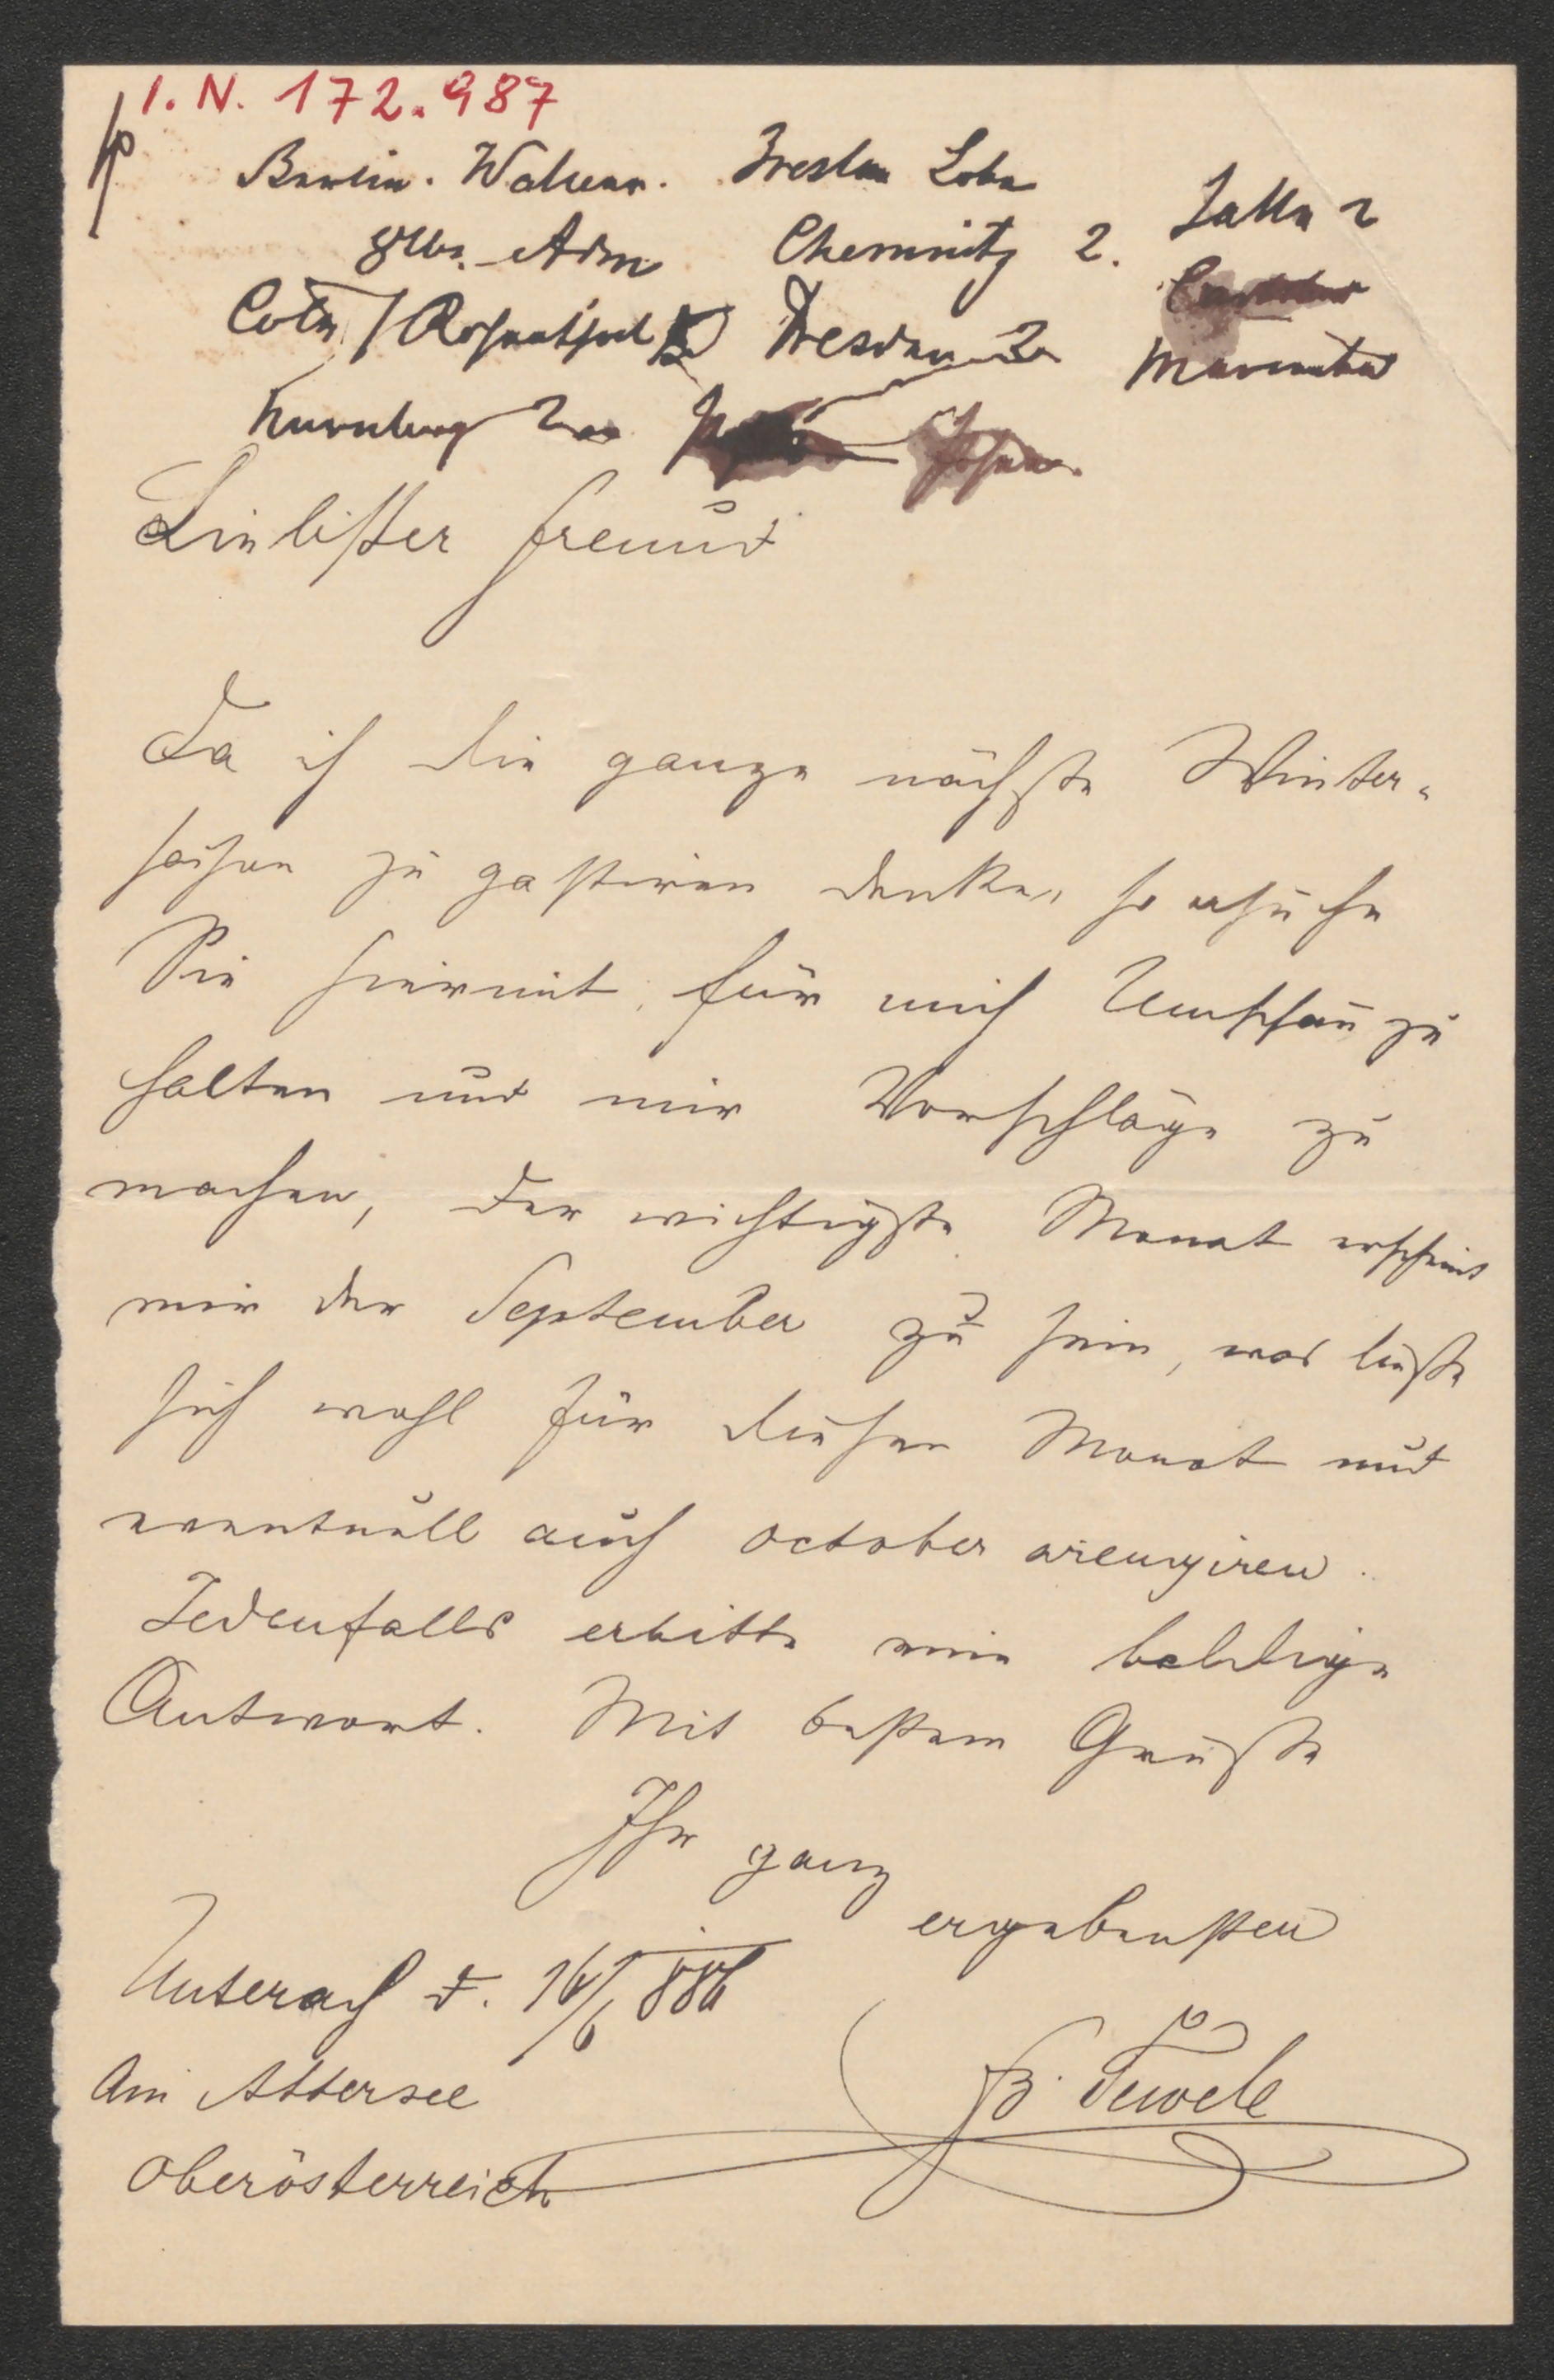 I. N. 172.987
Berlin. Wallner. Breslau Lobe Halle 2
Chemnitz 2.
Cöln / Rosenthal Dresden 2
Nürnberg 2
Liebster Freund
Da ich die ganze nächste Winter-
saison zu gastiren denke, so ersuche
Sie hiermit, für mich Umschau zu
halten und mir Vorschläge zu
machen, der wichtigste Monat erscheint
mir der September zu sein, was ließe
sich wohl für diesen Monat und
eventuell auch October arengiren.
Jedenfalls erbitte mir baldige
Antwort. Mit bestem Gruße
Ihr ganz
ergebensten
Unterach d. 16/6 886
Am Attersee
F. Tewele
Oberösterreich